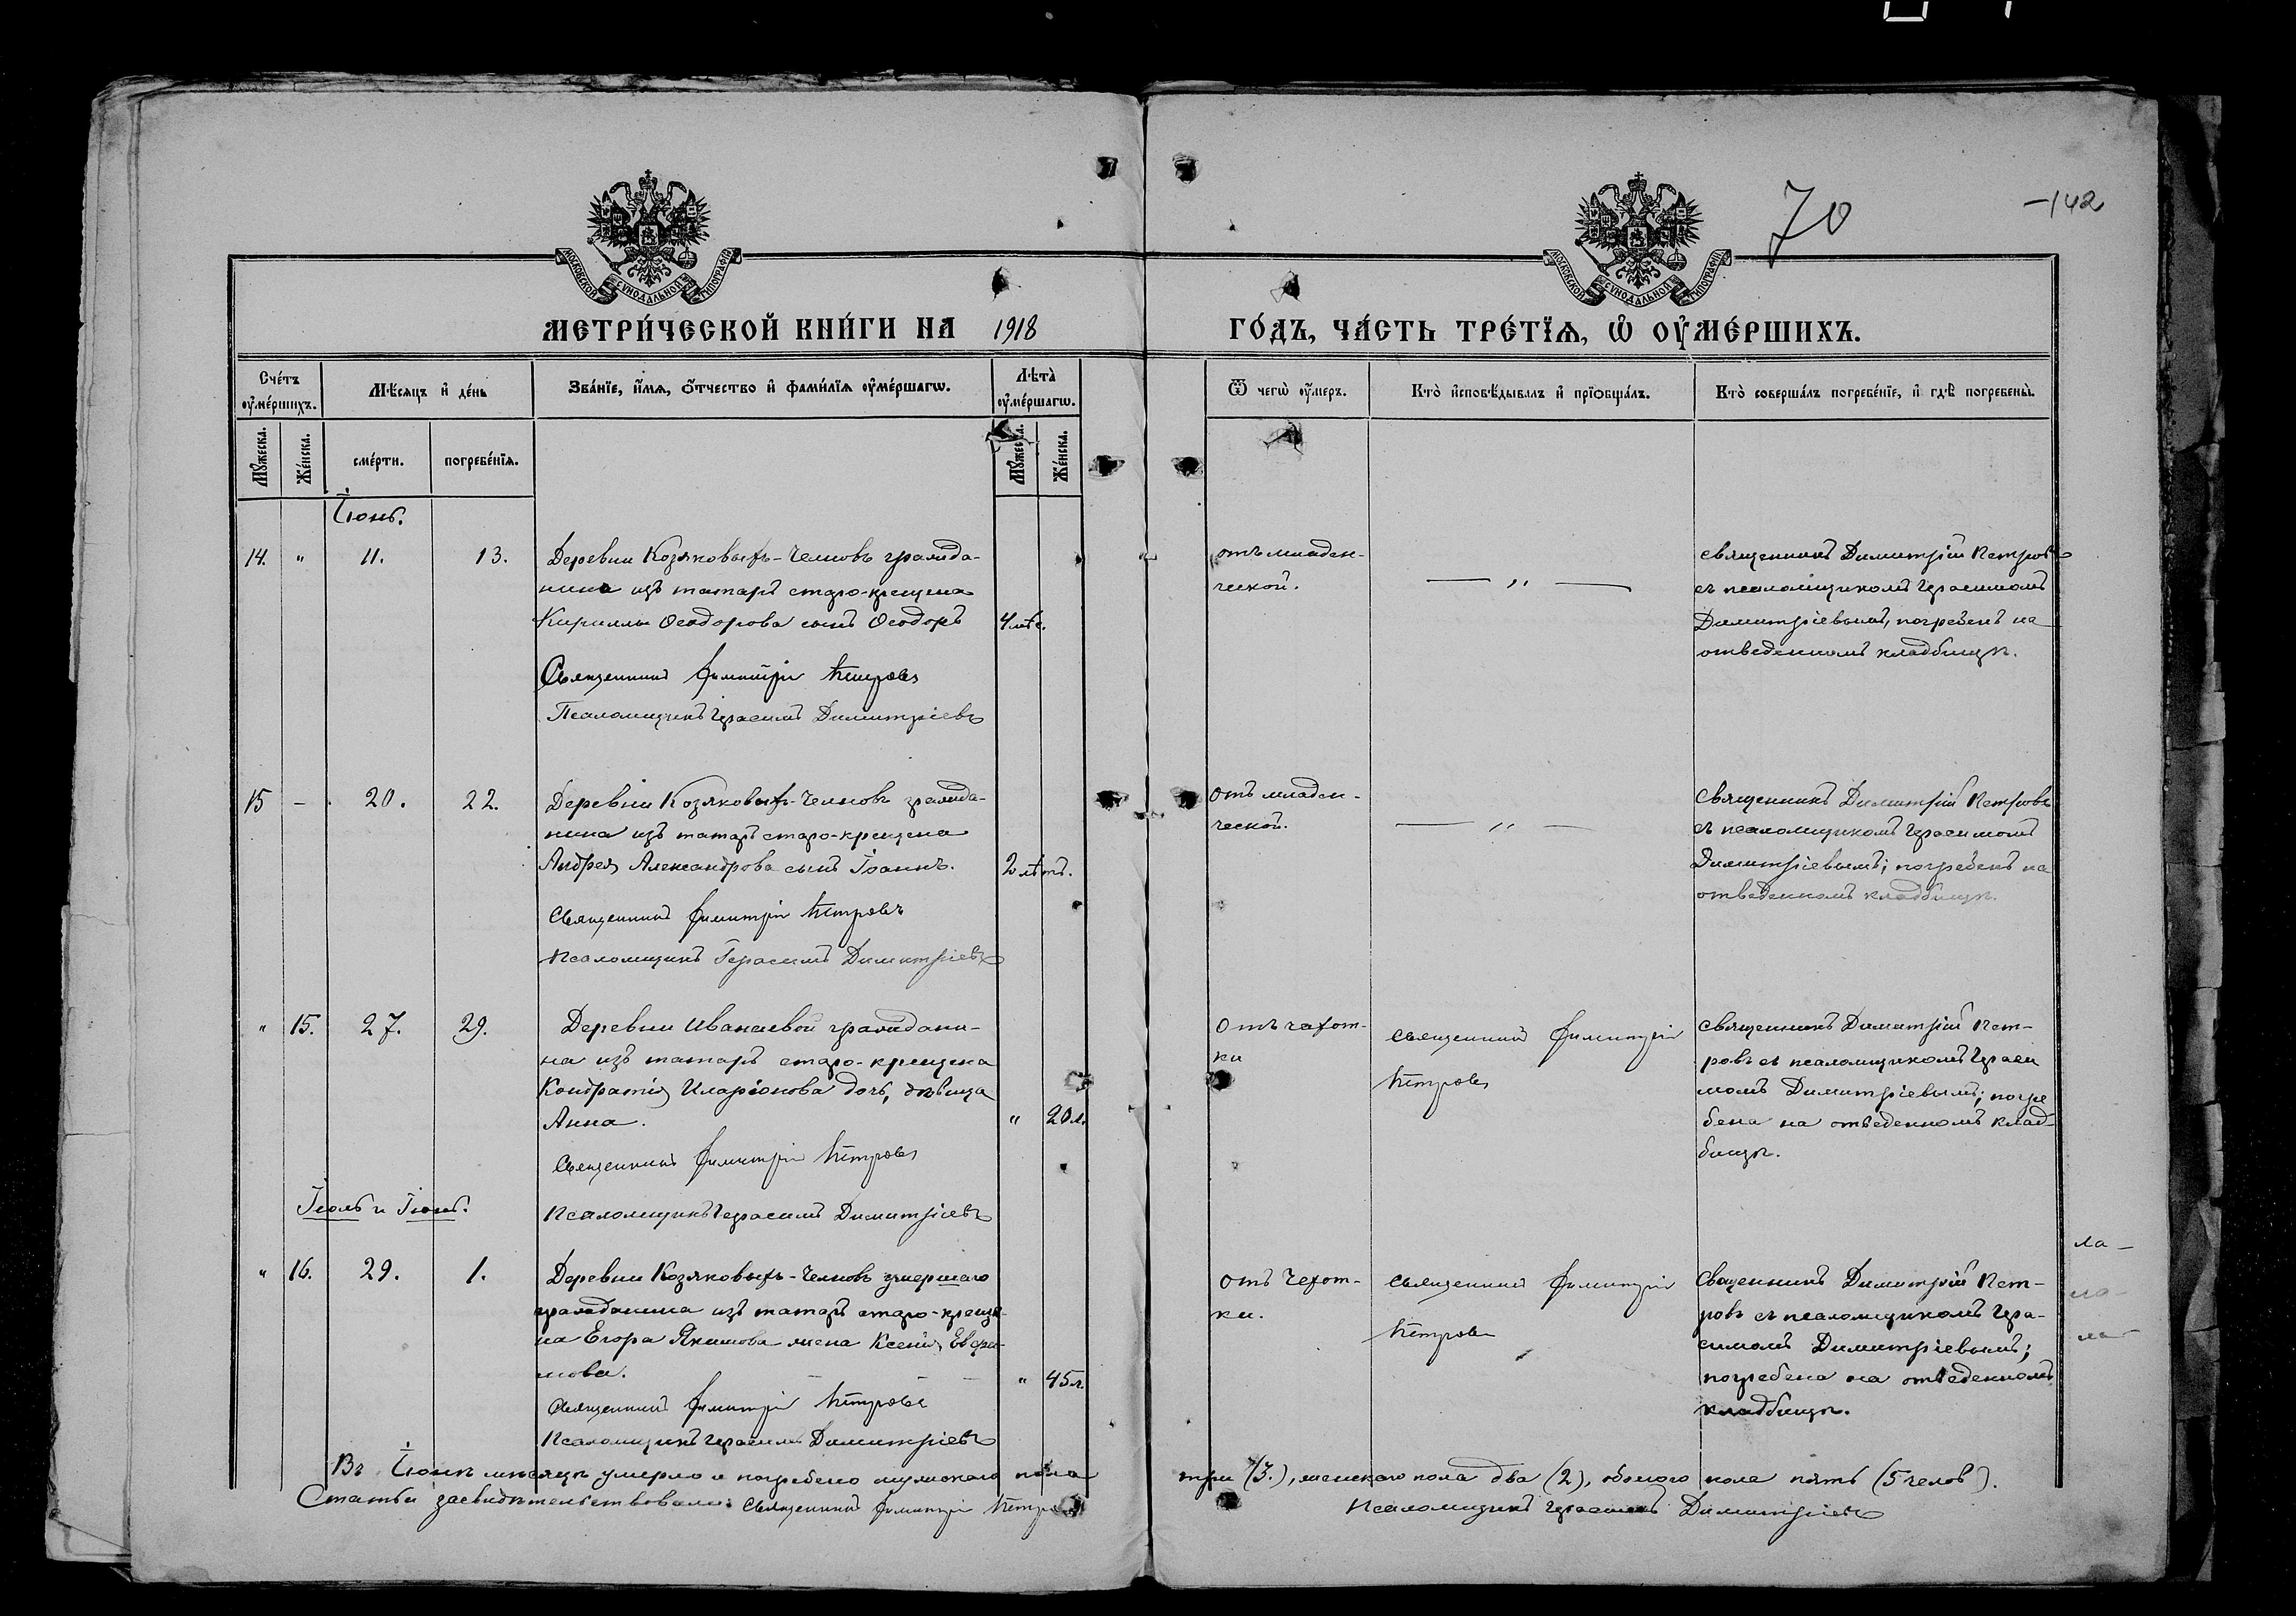 70
-142
МОСКОВСКОЙ СѴНОДАЛЬНОЙ ТИПОГРАФІИ
МОСКОВСКОЙ СѴНОДАЛЬНОЙ ТИПОГРАФІИ
МЕТРИ́ЧЕСКОЙ КНИ́ГИ НА 1918 ГО́ДЪ, ЧА́СТЬ ТРЕ́ТЇѦ, Ѡ҆ ОУ҆МЕ́РШИХЪ.
Сче́тъ оу҆ме́ршихъ.
Мѣ́сяцъ и҆ де́нь
Зва́нїе, и҆́мя, ѻ҆́тчество и҆ фами́лїя оу҆ме́ршагѡ.
Лѣ́та оу҆ме́ршагѡ.
Ѿ чегѡ̀ оу҆́меръ.
Кто̀ и҆сповѣ́дывалъ и҆ прїѻбща́лъ.
Кто̀ соверша́лъ погребе́нїе, и҆ гдѣ̀ погребены̀.
Мꙋ́жеска. Же́нска. сме́рти. погребе́нїя. Мꙋ́жеска. Же́нска.
Іюнь.
14. " 11. 13. Деревни Козяковыхъ-Челновъ гражда-
нина изъ татаръ старо-крещена
Кириллы Ѳеодорова сынъ Ѳеодоръ
Священникъ Димитрій Петровъ
Псаломщикъ Герасимъ Димитріевъ
отъ младен-
ческой.
— " —
священникъ Димитрій Петровъ
съ псаломщикомъ Герасимомъ
Димитріевымъ, погребенъ на
отведенномъ кладбищѣ.
15 - 20. 22. Деревни Козяковыхъ-Челновъ гражда-
нина изъ татаръ старо-крещена
Андрея Александрова сынъ Іоаннъ. 2 лѣтъ.
Священникъ Димитрій Петровъ
Псаломщикъ Герасимъ Димитріевъ
отъ младен-
ческой.
— " —
священникъ Димитрій Петровъ
съ псаломщикомъ Герасимомъ
Димитріевымъ; погребенъ на
отведенномъ кладбищѣ.
" 15. 27. 29. Деревни Иванаевой граждани-
на изъ татаръ старо-крещена
Кондратія Иларіонова дочь, дѣвица
Анна. " 20 л.
Священникъ Димитрій Петровъ
Псаломщикъ Герасимъ Димитріевъ
отъ чахот-
ки
священникъ Димитрій
Петровъ
священникъ Димитрій Пет-
ровъ съ псаломщикомъ Гераси
момъ Димитріевымъ; погре
бена на отведенномъ клад-
бищѣ.
Іюль и Іюнь.
" 16. 29. 1. Деревни Козяковыхъ-Челновъ умершаго
гражданина изъ татаръ старо-креще-
на Егора Якимова жена Ксенія
" 45 л.
Священникъ Димитрій Петровъ
Псаломщикъ Герасимъ Димитріевъ
отъ чахот-
ки.
священникъ Димитрій
Петровъ
Священникъ Димитрій Пет-
ровъ съ псаломщикомъ Гера-
симомъ Димитріевымъ;
погребена на отведенномъ
кладбищѣ.
ла-
ла-
ла-
Въ Іюнѣ мѣсяцѣ умерло и погребено мужскаго пола три (3.), женскаго пола два (2), обоего пола пять (5 челов.).
Статьи засвидѣтельствовали: Священникъ Димитрій Петровъ
Псаломщикъ Герасимъ Димитріевъ